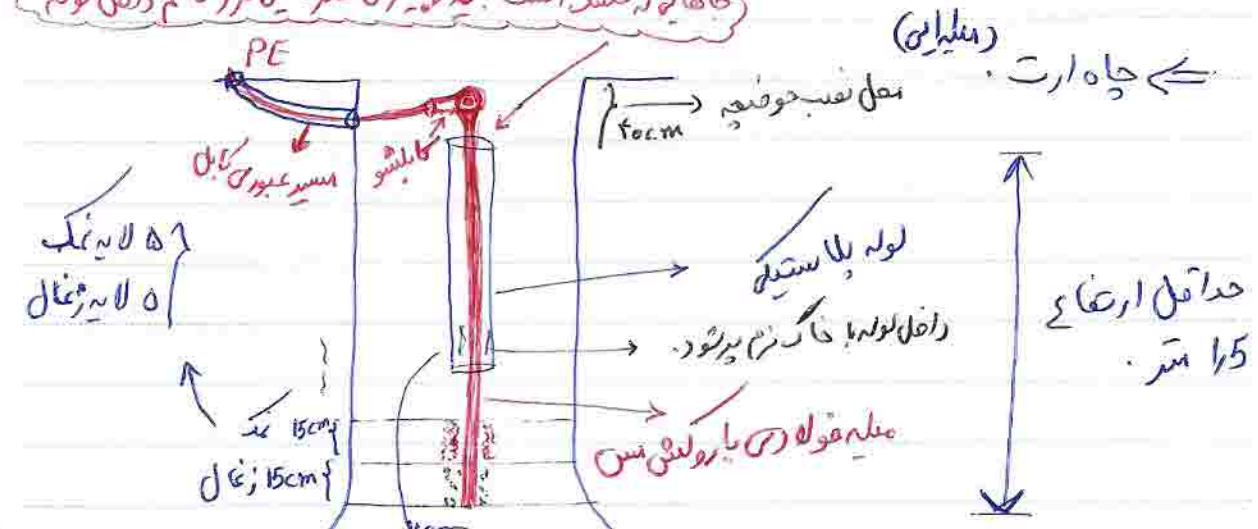 چاه ارت . (میله‌ایی)
PE
محل نصب حوضچه
40cm
کابلشو
مسیر عبوری کابل
۵ لایه نمک
۵ لایه زغال
لوله پلاستیکی
داخل لوله با خاک نرم پر شود.
حداقل ارتفاع
1,5 متر .
15cm نمک
15cm زغال
میله فولادی با روکش مس